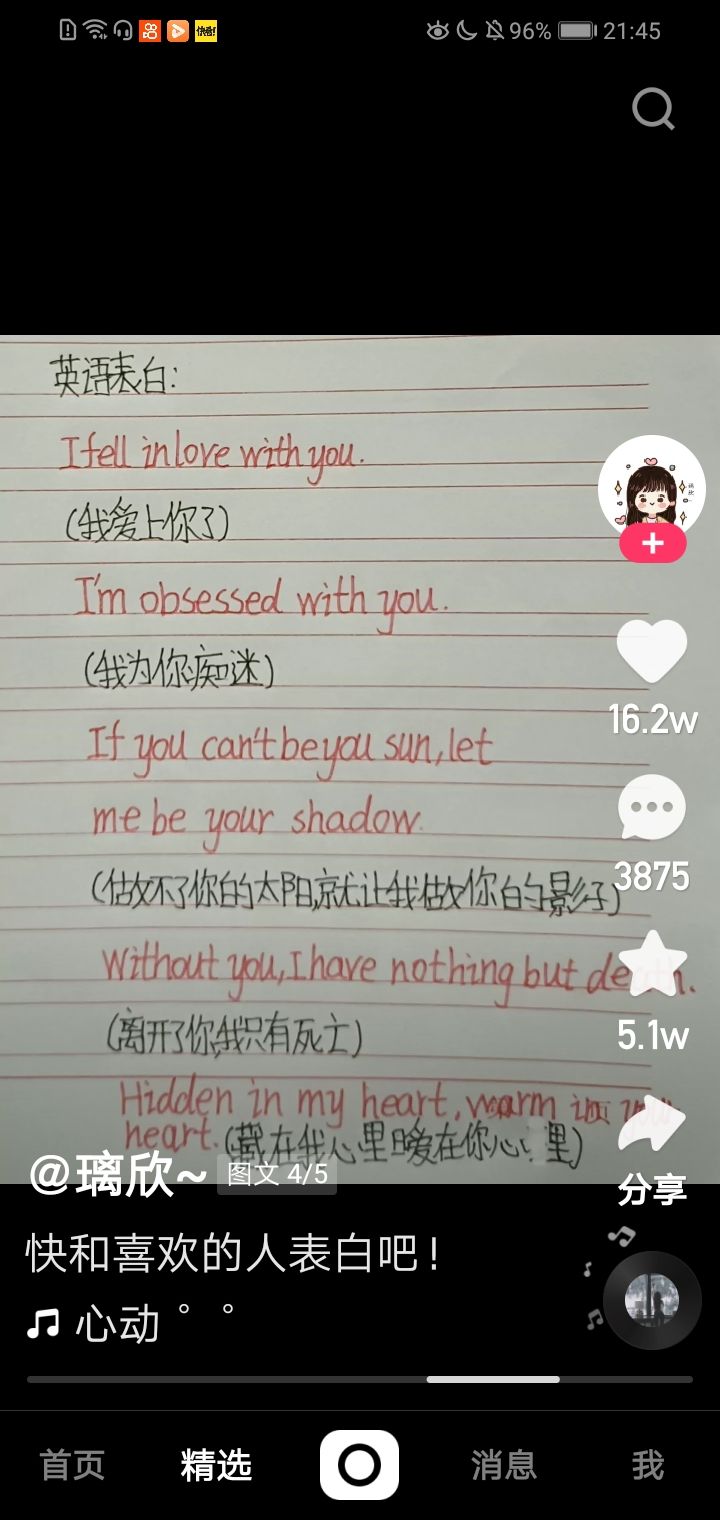 96% 21:45
英语表白:
I fell in love with you.
(我爱上你了)
I'm obsessed with you.
(我为你痴迷)
If you can't be you sun, let
me be your shadow.
(做不了你的太阳,就让我做你的影子)
Without you, I have nothing but death.
(离开了你,我只有死亡)
Hidden in my heart, warm in your
heart. (藏在我心里暖在你心里)
16.2w
3875
5.1w
分享
@璃欣~ 图文 4/5
快和喜欢的人表白吧!
心动 ° °
首页 精选 消息 我